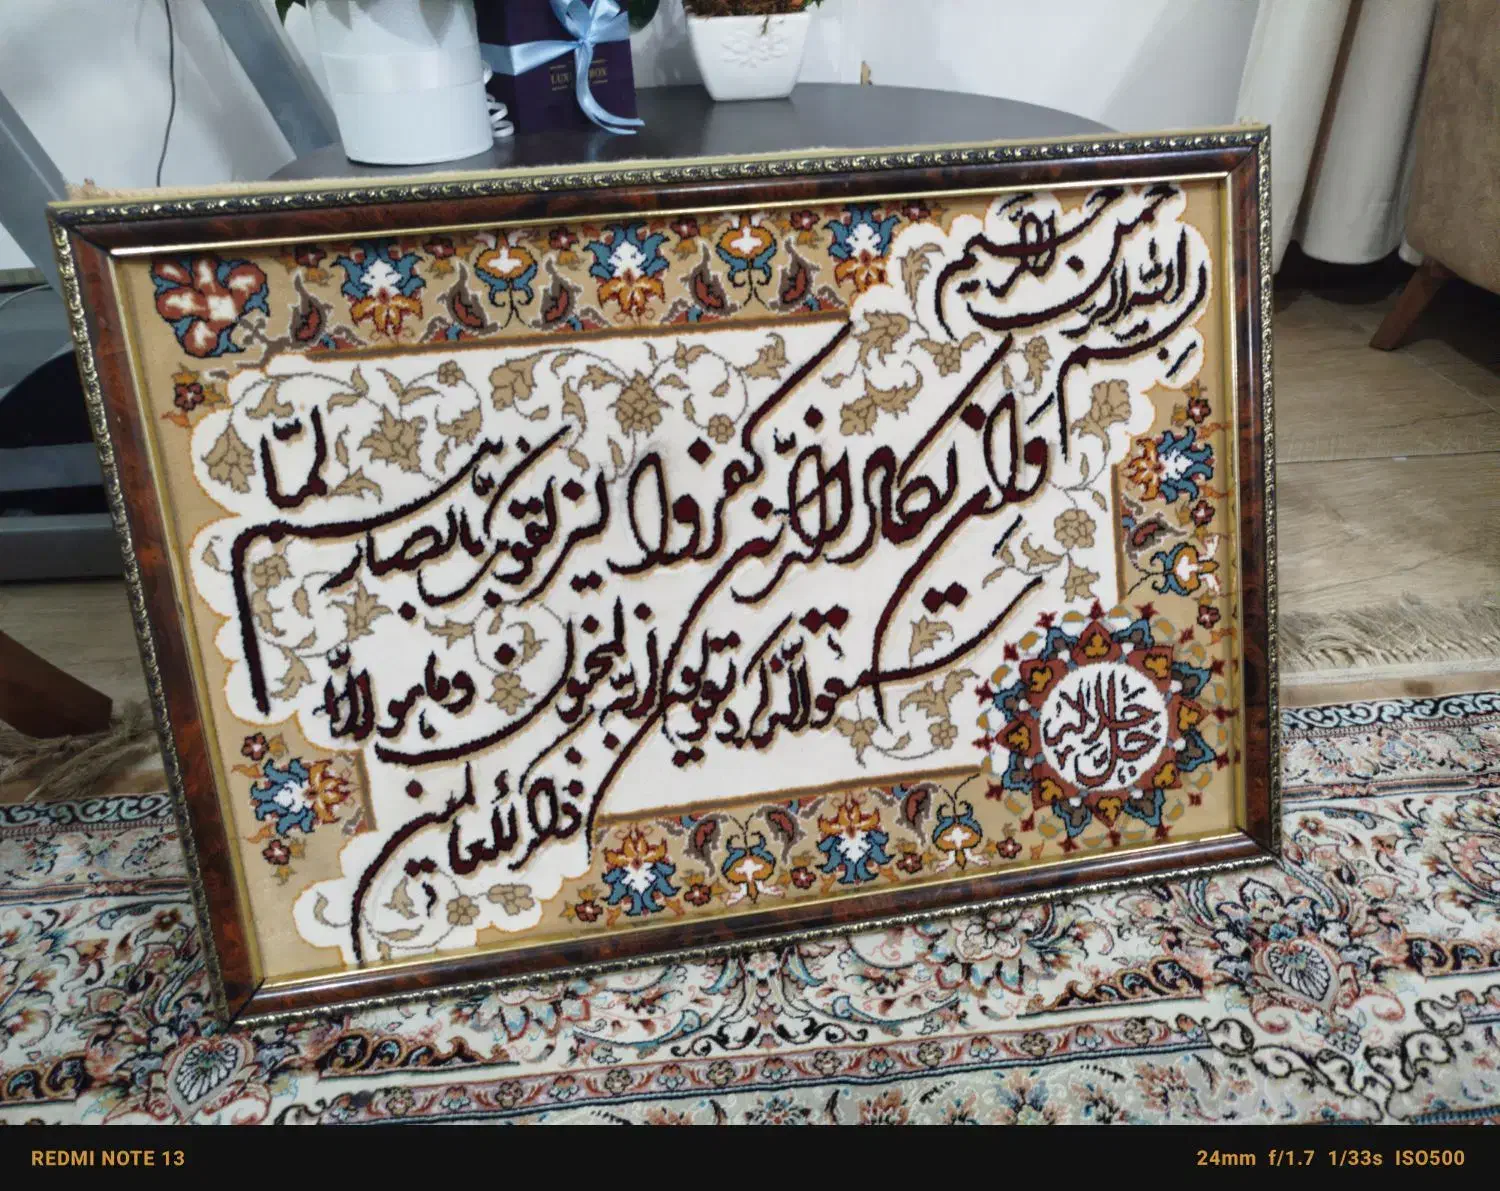 LUXURY BOX
بسم الله الرحمن الرحیم
وان یکاد الذین کفروا لیزلقونک بابصارهم لما
سمعوا الذکر و یقولون انه لمجنون وما هو الا
ذکر للعالمین
جل جلاله
REDMI NOTE 13
24mm f/1.7 1/33s ISO500